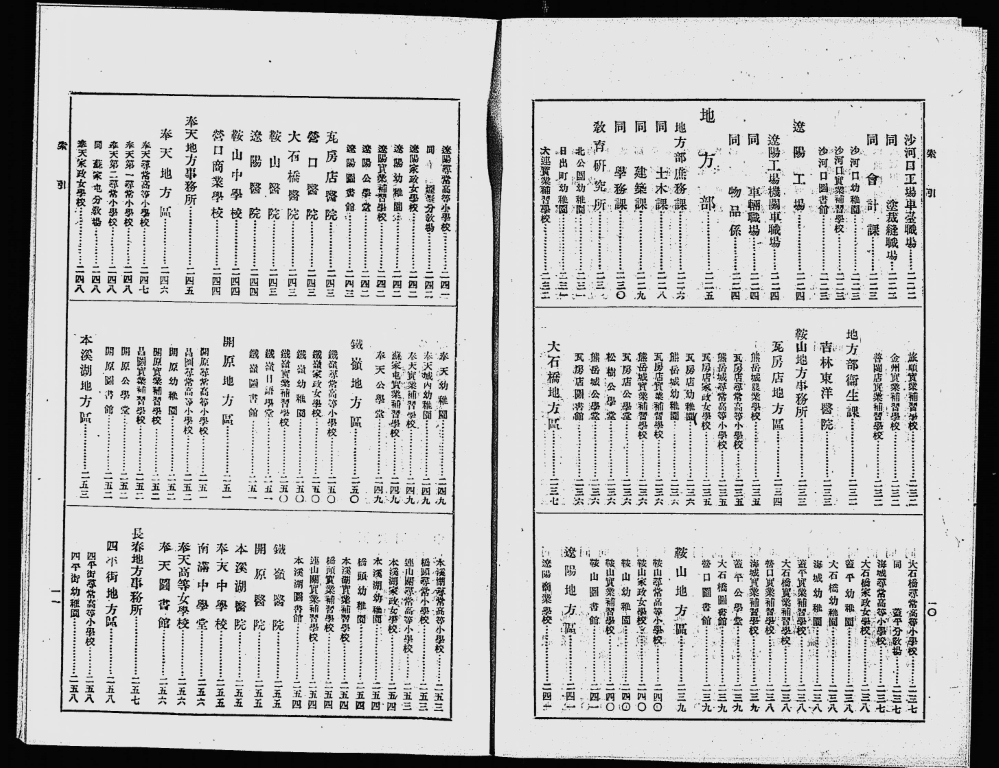 索引
一〇
沙河口工場車臺職場………二二二
同 塗裁縫職場………二二二
同 會計課………二二三
沙河口幼稚園………二二三
沙河口實業補習學校………二二三
沙河口圖書館………二二三
遼陽工場………二二四
遼陽工場機關車職場………二二四
同 車輛職場………二二四
同 物品係………二二四
地方部………二二五
地方部庶務課………二二六
同 土木課………二二八
同 建築課………二二九
同 學務課………二三〇
教育研究所………二三一
北公園幼稚園………二三一
日出町幼稚園………二三一
大連實業補習學校………二三二
旅順實業補習學校………二三二
金州實業補習學校………二三二
普蘭店實業補習學校………二三二
地方部衞生課………二三二
吉林東洋醫院………二三三
鞍山地方事務所………二三三
瓦房店地方區………二三四
熊岳城農業學校………二三五
瓦房店尋常高等小學校………二三五
熊岳城尋常高等小學校………二三五
瓦房店家政女學校………二三五
瓦房店幼稚園………二三六
熊岳城幼稚園………二三六
瓦房店實業補習學校………二三六
熊岳城實業補習學校………二三六
瓦房店公學堂………二三六
松樹公學堂………二三六
熊岳城公學堂………二三六
瓦房店圖書館………二三六
大石橋地方區………二三七
大石橋尋常高等小學校………二三七
同 蓋平分教場………二三七
海城尋常高等小學校………二三七
大石橋家政女學校………二三八
蓋平幼稚園………二三八
大石橋幼稚園………二三八
海城幼稚園………二三八
蓋平實業補習學校………二三八
大石橋實業補習學校………二三八
營口實業補習學校………二三八
海城實業補習學校………二三九
蓋平公學堂………二三九
大石橋圖書館………二三九
營口圖書館………二三九
鞍山地方區………二三九
鞍山尋常高等小學校………二四〇
鞍山家政女學校………二四〇
鞍山幼稚園………二四〇
鞍山實業補習學校………二四〇
鞍山圖書館………二四一
遼陽地方區………二四一
遼陽商業學校………二四一
遼陽尋常高等小學校………二四一
同 煙臺分教場………二四二
遼陽家政女學校………二四二
遼陽幼稚園………二四二
遼陽實業補習學校………二四二
遼陽公學堂………二四二
遼陽圖書館………二四三
瓦房店醫院………二四三
營口醫院………二四三
大石橋醫院………二四三
遼陽醫院………二四三
鞍山醫院………二四四
鞍山中學校………二四四
營口商業學校………二四四
奉天地方事務所………二四五
奉天地方區………二四六
奉天尋常高等小學校………二四七
奉天第一尋常小學校………二四八
奉天第二尋常小學校………二四八
同 蘇家屯分教場………二四八
奉天家政女學校………二四八
奉天幼稚園………二四九
奉天城內幼稚園………二四九
奉天實業補習學校………二四九
蘇家屯實業補習學校………二四九
奉天公學堂………二四九
鐵嶺地方區………二五〇
鐵嶺尋常高等小學校………二五〇
鐵嶺家政女學校………二五〇
鐵嶺幼稚園………二五〇
鐵嶺實業補習學校………二五〇
鐵嶺日語學堂………二五一
鐵嶺圖書館………二五一
開原地方區………二五一
開原尋常高等小學校………二五一
昌圖尋常高等小學校………二五二
開原幼稚園………二五二
開原實業補習學校………二五二
昌圖實業補習學校………二五二
開原公學堂………二五二
開原圖書館………二五二
本溪湖地方區………二五三
本溪湖尋常高等小學校………二五三
橋頭尋常小學校………二五三
連山關尋常高等小學校………二五三
本溪湖家政女學校………二五四
本溪湖幼稚園………二五四
橋頭幼稚園………二五四
本溪湖實業補習學校………二五四
橋頭實業補習學校………二五四
連山關實業補習學校………二五四
本溪湖圖書館………二五四
鐵嶺醫院………二五五
開原醫院………二五五
本溪湖醫院………二五五
奉天中學校………二五五
南滿中學堂………二五六
奉天高等女學校………二五六
奉天圖書館………二五六
長春地方事務所………二五七
四平街地方區………二五八
四平街尋常高等小學校………二五八
四平街幼稚園………二五八
索引
一一